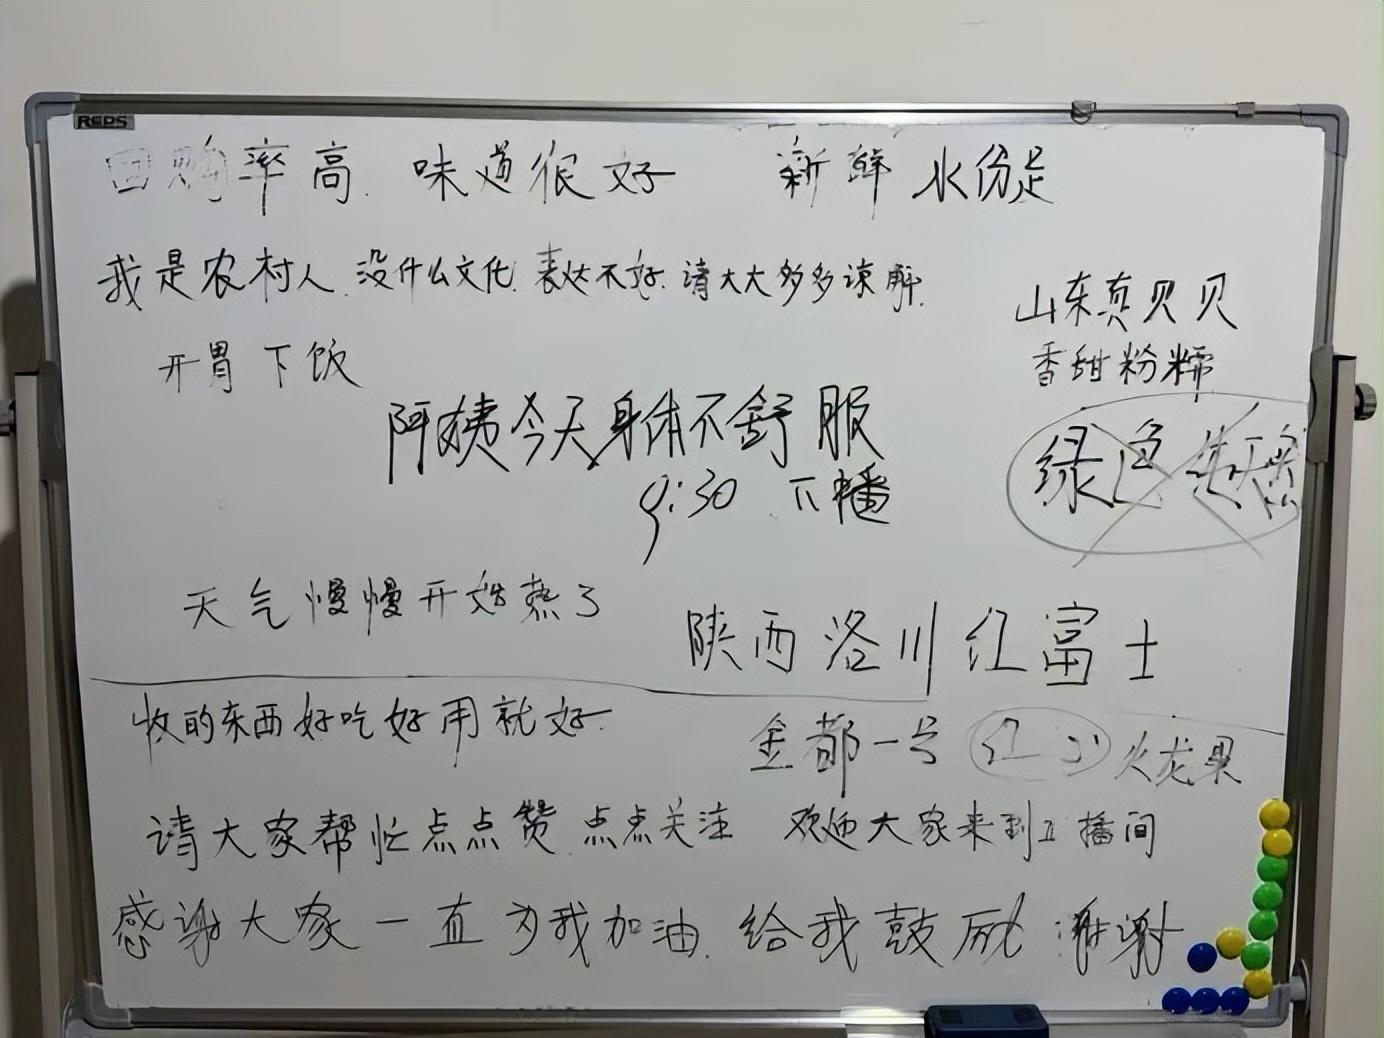 REDS
回购率高.味道很好 新鲜 水份足
我是农村人.没什么文化.表达不好.请大大多多谅解.
山东真贝贝
开胃下饭
香甜粉糯
阿姨今天身体不舒服
绿色
9:30 下播
天气慢慢开始热了
陕西洛川红富士
收的东西好吃好用就好.
金都一号 红心 火龙果
请大家帮忙点点赞.点点关注 欢迎大家来到直播间
感谢大家一直为我加油.给我鼓励 谢谢